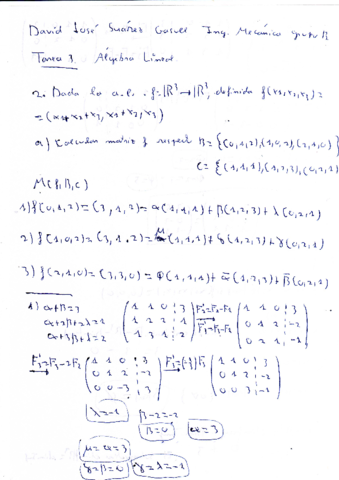 David José Suárez Ing. Mecánica grupo B
Tarea 3 Álgebra Lineal
2. Dada la a.l. f: ℝ³→ℝ³, definida f(x₁,x₂,x₃)=
=(x₁+x₂+x₃, x₁+x₂, x₃)
a) Calcular matriz f respect B={(0,1,2),(1,0,2),(2,1,0)}
C={(1,1,1),(1,2,3),(0,2,1)}
M(f,B,C)
1) f(0,1,2)=(3,1,2)=α(1,1,1)+β(1,2,3)+λ(0,2,1)
2) f(1,0,2)=(3,1,2)=μ(1,1,1)+γ(1,2,3)+γ(0,2,1)
3) f(2,1,0)=(3,3,0)=φ(1,1,1)+α(1,2,3)+β(0,2,1)
1) α+β=3
α+2β+2λ=1
α+3β+λ=2
(1 1 0 | 3
1 2 2 | 1
1 3 1 | 2) F₂'=F₂-F₁ F₃'=F₃-F₁ → (1 1 0 | 3
0 1 2 | -2
0 2 1 | -1)
F₃'=F₃-2F₂ → (1 1 0 | 3
0 1 2 | -2
0 0 -3 | 3) → (1 1 0 | 3
0 1 2 | -2
0 0 3 | -3)
λ=-1 β-2=-2
β=0 α=3
μ=α=3
γ=β=0 γ=λ=-1